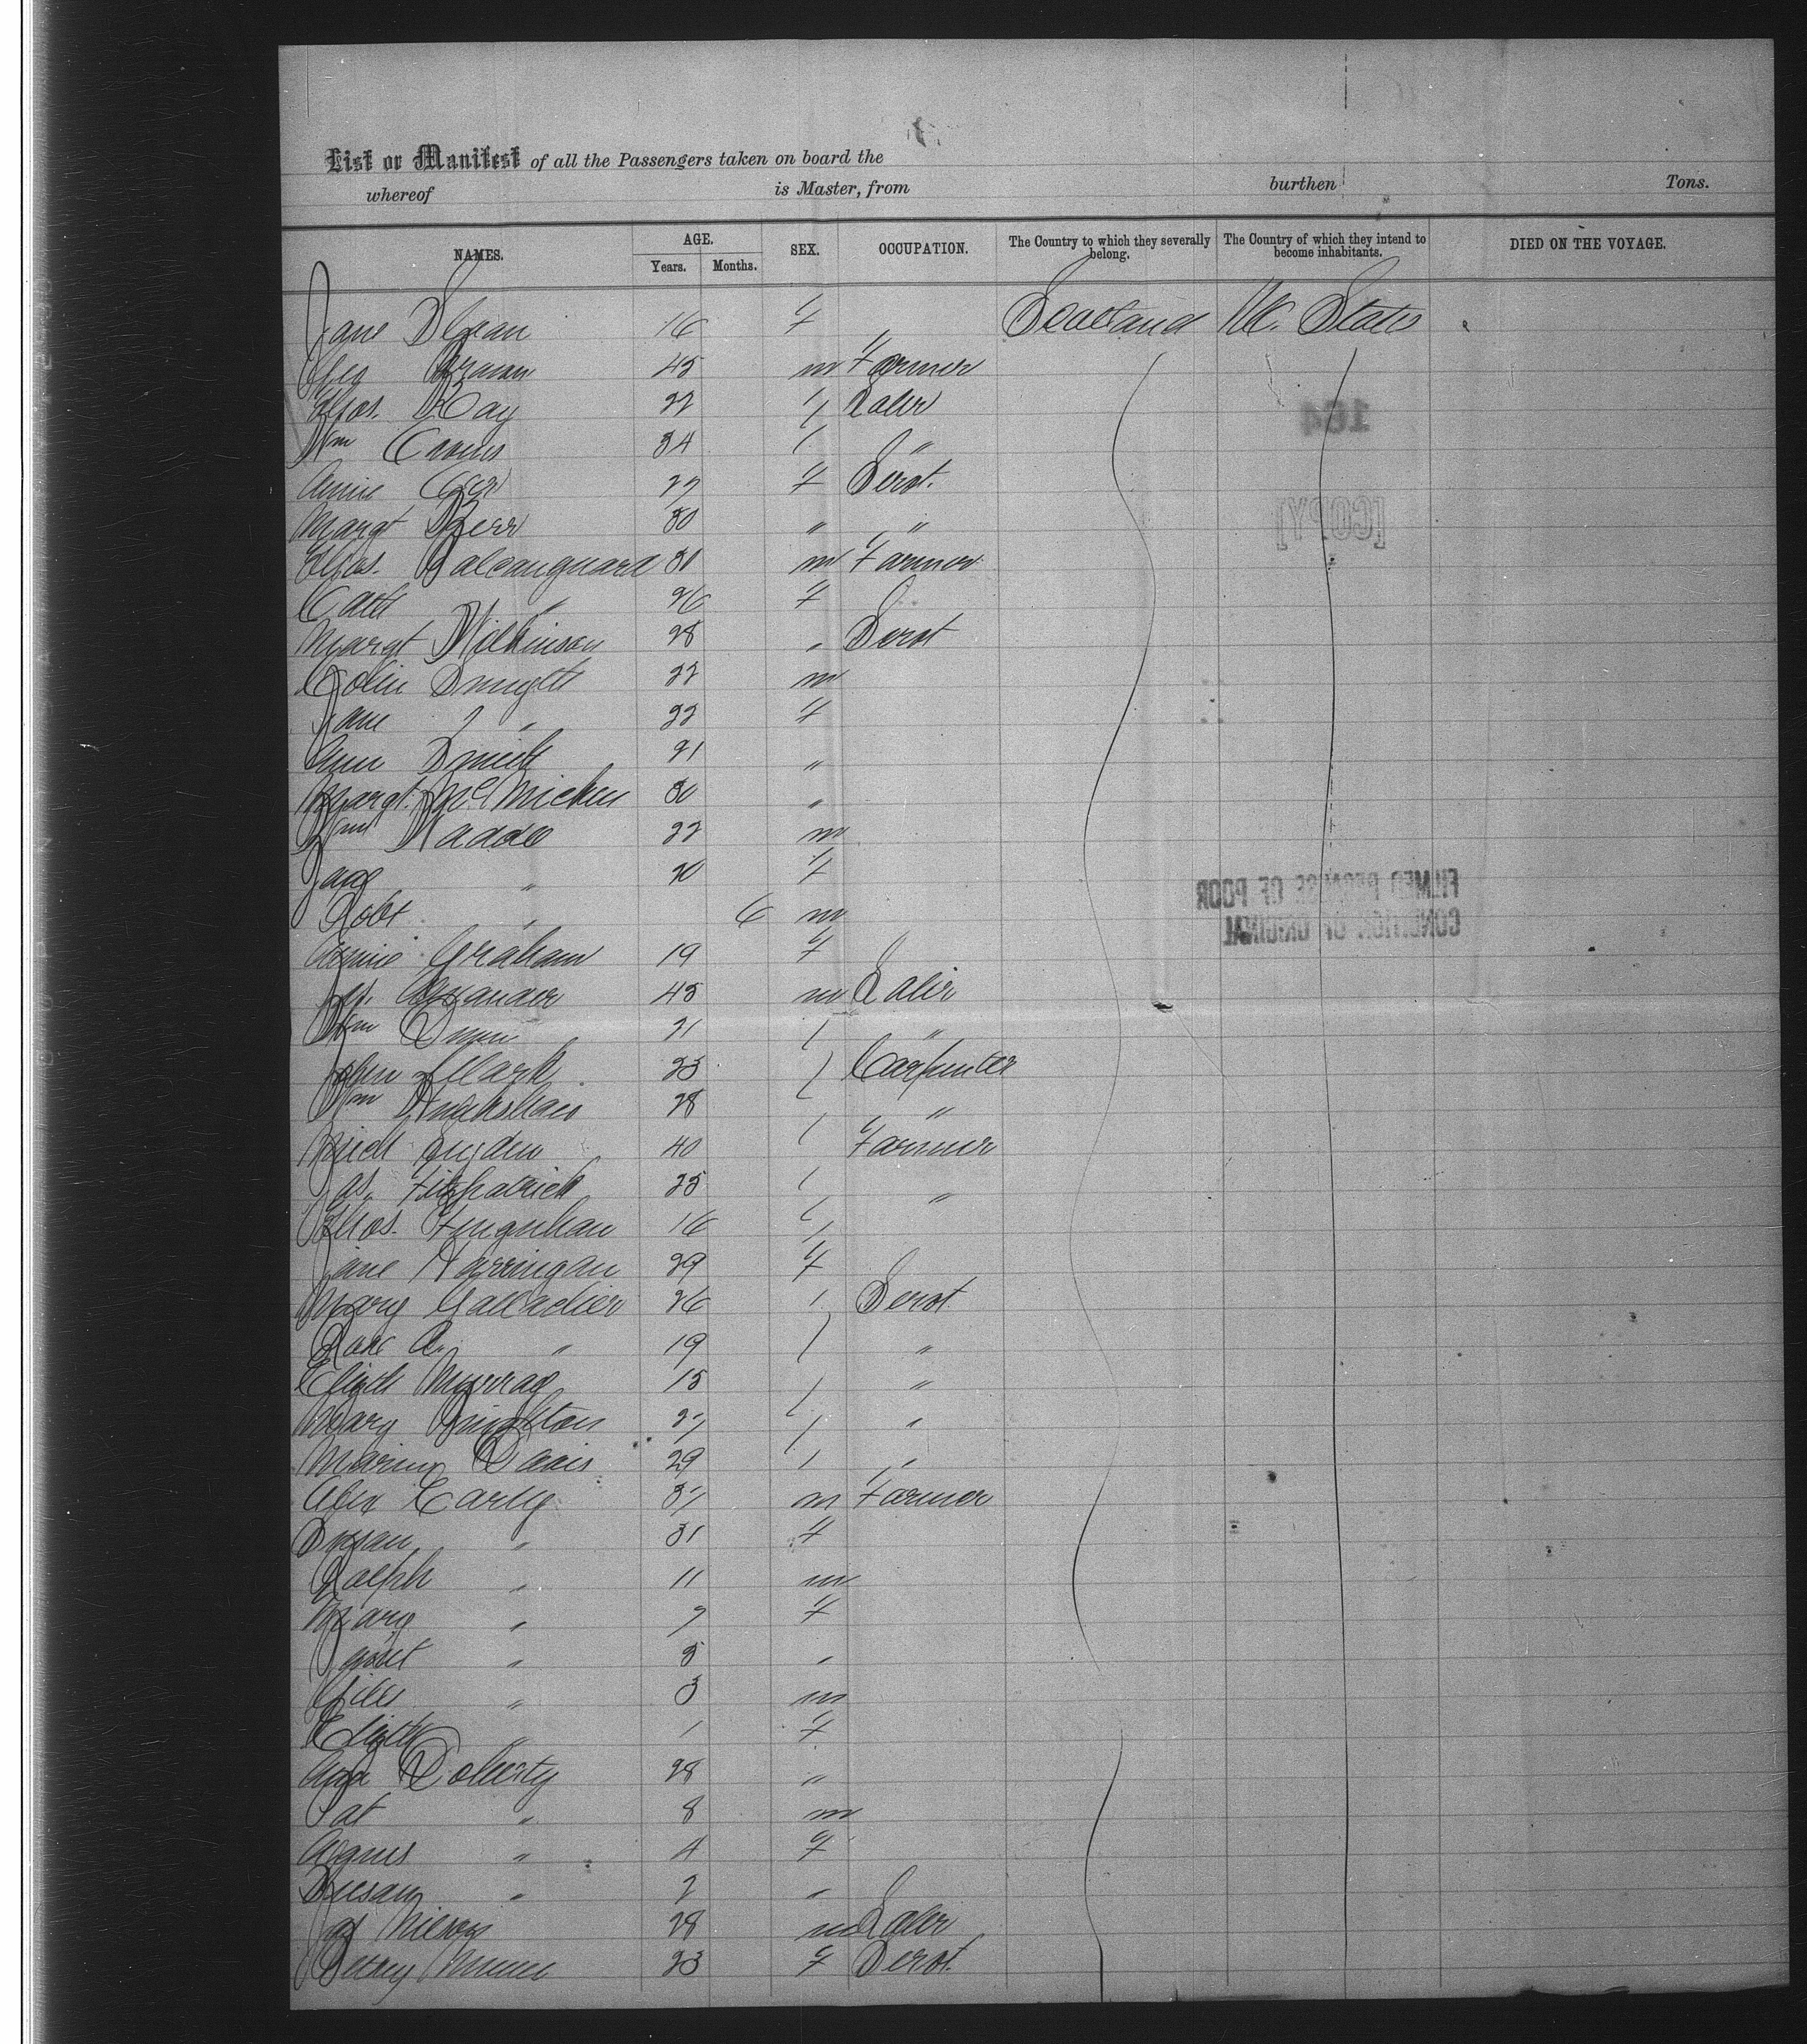 List or Manifest of all the Passengers taken on board the
whereof is Master, from burthen Tons.
NAMES. AGE. Years. Months. SEX. OCCUPATION. The Country to which they severally belong. The Country of which they intend to become inhabitants. DIED ON THE VOYAGE.
Jane Sloan 16 f Scotland U. States
45 m Farmer
Thos. Ray 22 " Laber
Wm 34 " "
Annie 27 f Servt.
Margt Kerr 30 " "
Thos. Balcanguard 30 m Farmer
Cath " 26 f
Margt Wilkinson 28 " Servt
Colin Smyth 22 m
Jane " 22 f
Ann Smith 21 "
Margt. McMicken 30 "
Wm Waddo 22 m
Jane " 20 f
Robt " 6 m
Annie Graham 19 f
Alexander 45 m Laber
Wm 21 " "
John Clark 23 " Carpenter
Wm 28 " "
Mich 40 " Farmer
Jas. Fitzpatrick 25 " "
Thos. 16 "
Jane Harringan 29 f
Mary Gallacher 26 " Servt
Rose A. " 19 " "
Elizth Murray 15 " "
Mary 27 " "
Davis 29 " "
Alex Early 37 m Farmer
Susan " 31 f
Ralph " 11 m
Mary " 7 f
Janet " 5 "
Giles " 3 m
Elizth " 1 f
Ann Doherty 28 "
Pat " 8 m
Agnes " 4 f
Susan " 2 "
Jas Nilson 28 m Laber
Betsey 23 f Servt.
164
[COPY]
FILMED BECAUSE OF POOR
CONDITION OF ORIGINAL